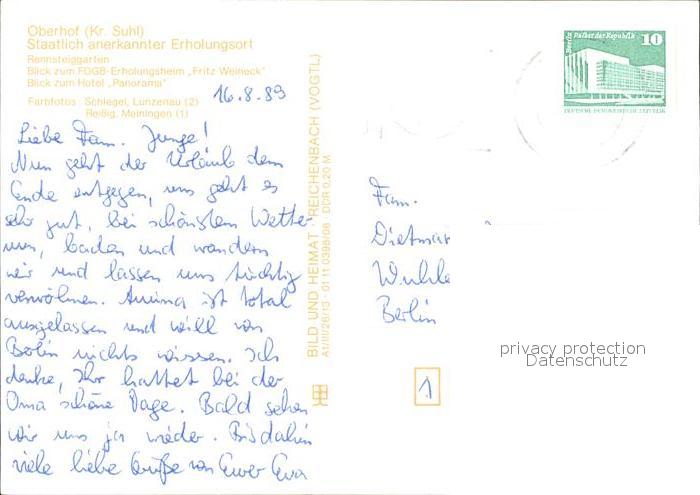 Oberhof (Kr. Suhl)
Staatlich anerkannter Erholungsort
Rennsteiggarten
Blick zum FDGB-Erholungsheim „Fritz Weineck“
Blick zum Hotel „Panorama“
Farbfotos: Schlegel, Lunzenau (2)
Reißig, Meiningen (1)
16.8.89
Liebe Fam. Junge!
Nun geht der Urlaub dem
Ende entgegen, uns geht es
sehr gut, bei schönstem Wetter
baden und wandern
wir und lassen uns tüchtig
verwöhnen. ist total
ausgelassen und will von
Berlin nichts wissen. Ich
denke, Ihr hattet bei der
Oma schöne Tage. Bald sehen
wir uns ja wieder. Bis dahin
viele liebe Grüße von Euer Eva
BILD UND HEIMAT · REICHENBACH (VOGTL)
A1/III/26/13 · 01 11 0398/06 · DDR 0,20 M
Berlin Palast der Republik
10
DEUTSCHE DEMOKRATISCHE REPUBLIK
Fam.
Dietmar
Wuhle
Berlin
1
privacy protection
Datenschutz